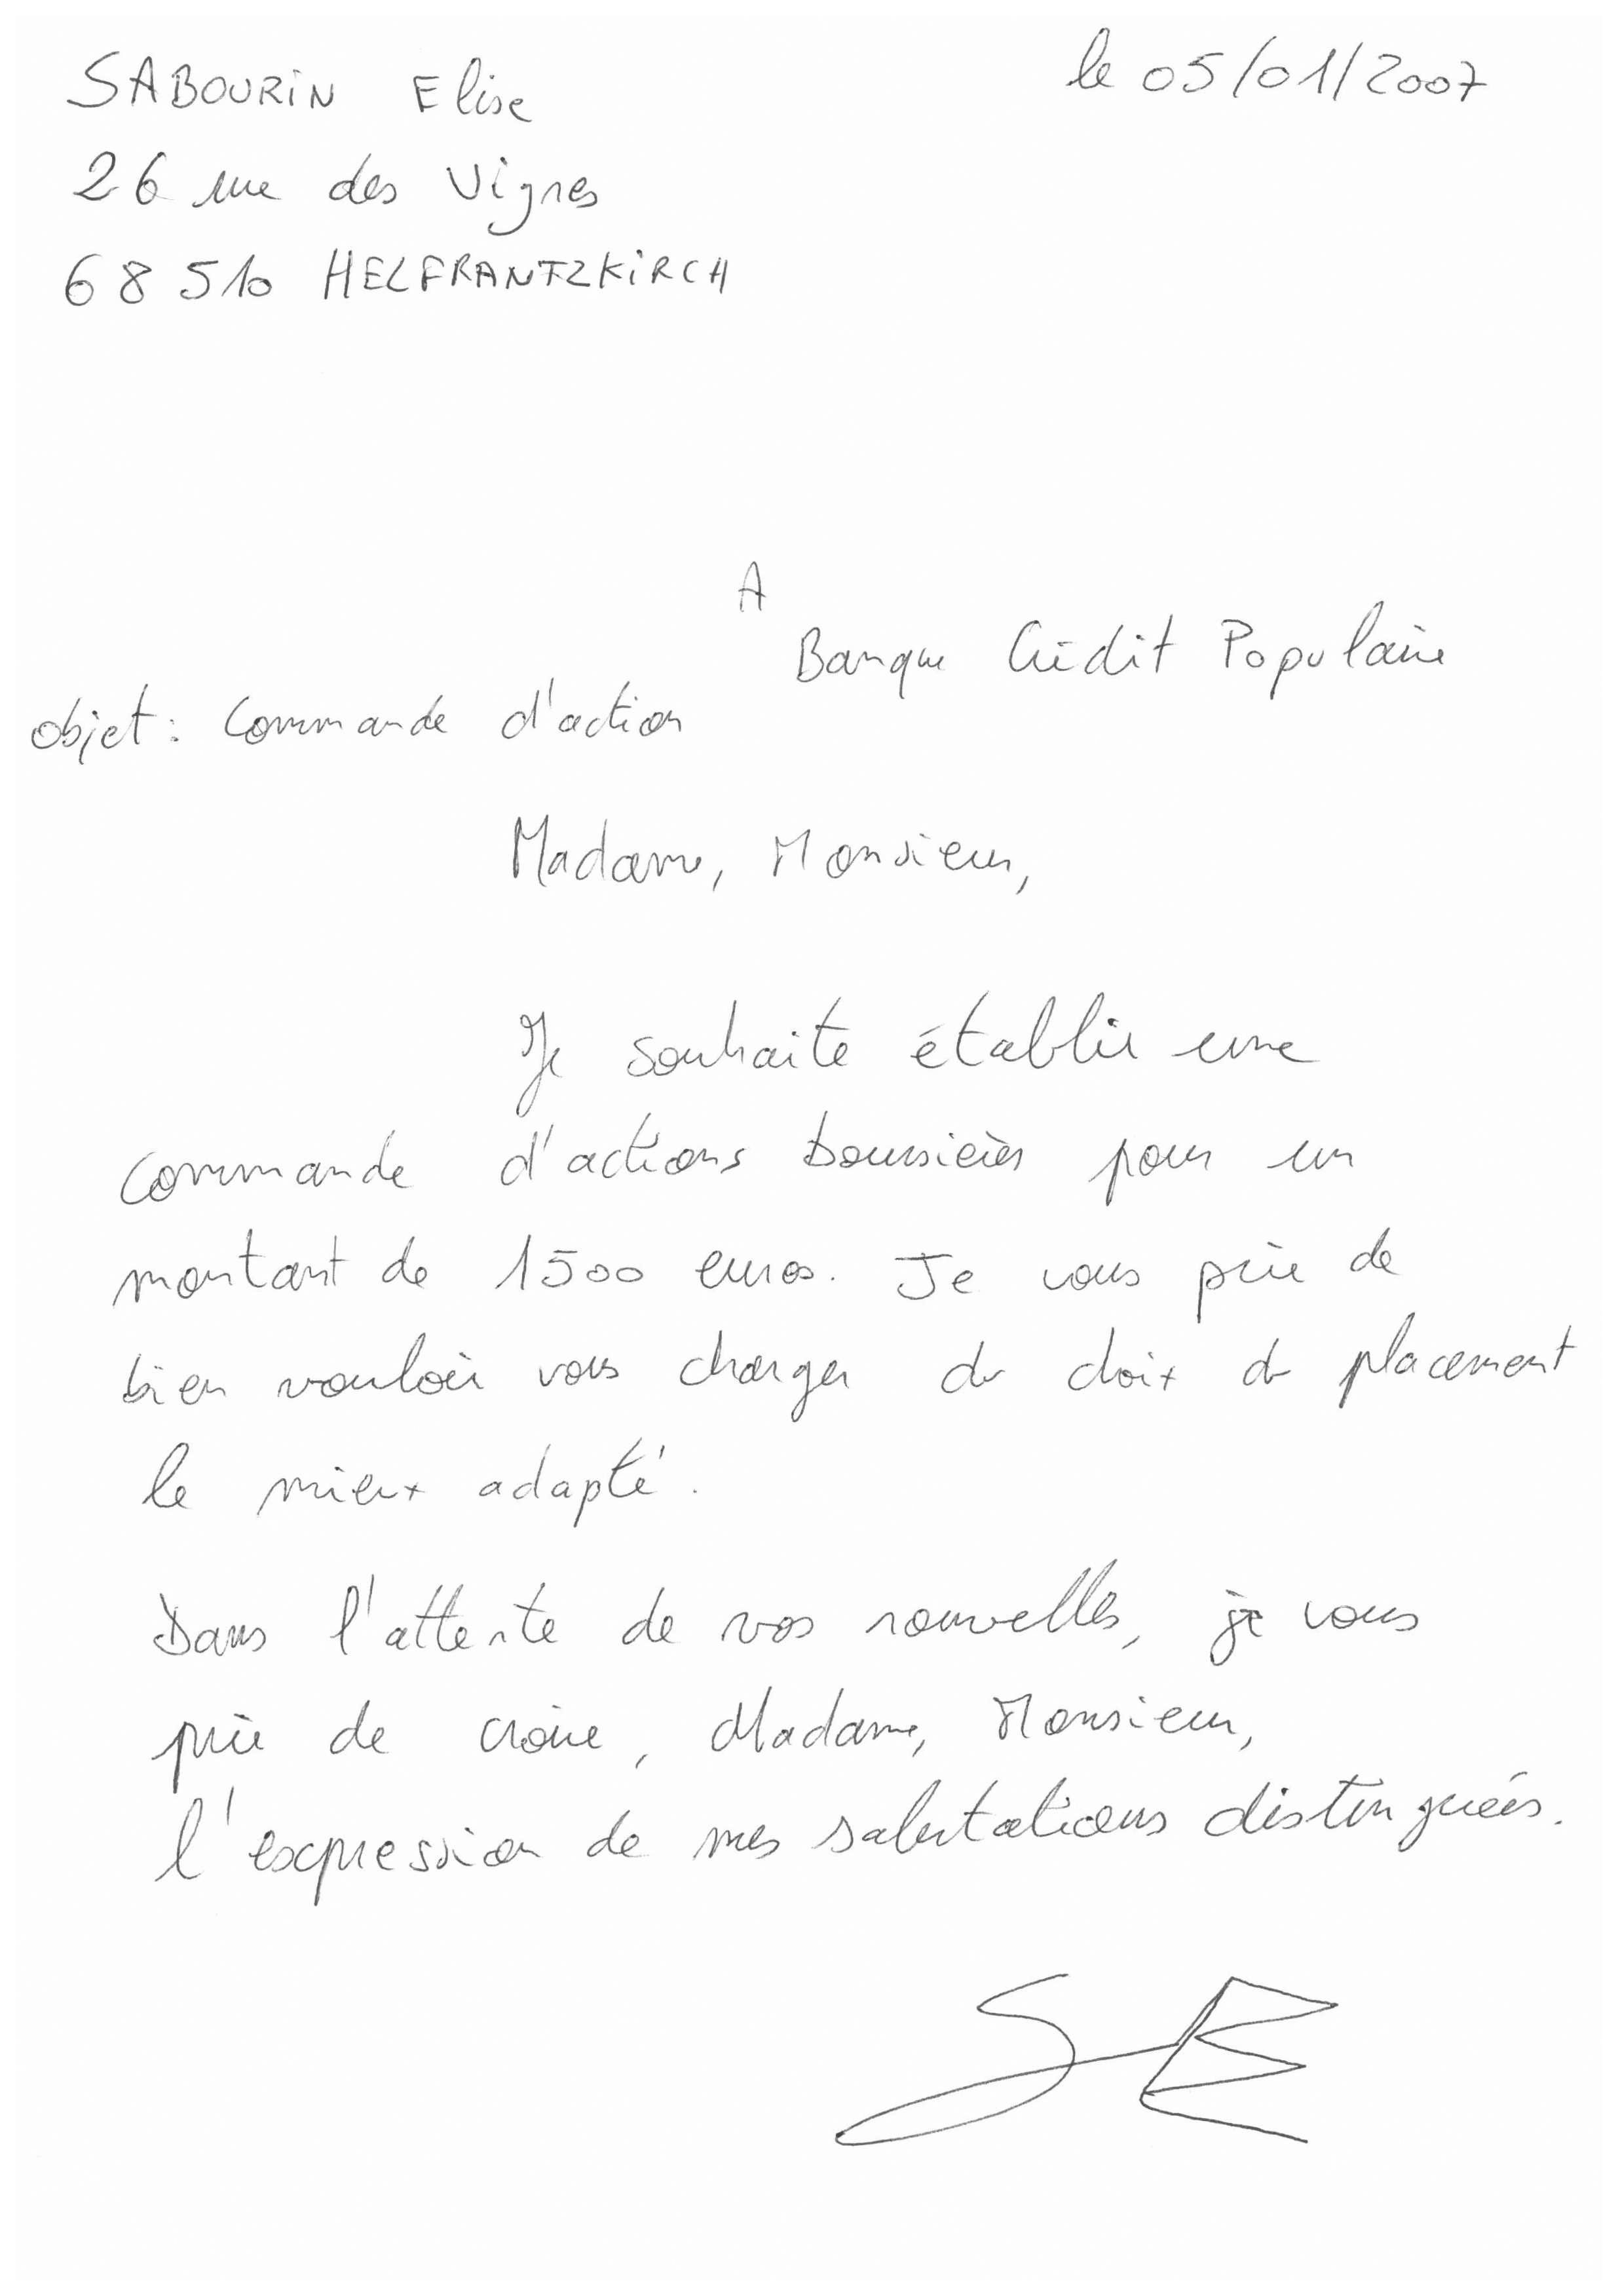 SABOURIN Elise
le 05/01/2007
26 rue des Vignes
68510 HELFRANTZKIRCH
A
Banque Crédit Populaire
objet : Commande d'action
Madame, Monsieur,
Je souhaite établir une
commande d'actions boursières pour un
montant de 1500 euros. Je vous prie de
bien vouloir vous charger du choix du placement
le mieux adapté.
Dans l'attente de vos nouvelles, je vous
prie de croire, Madame, Monsieur,
l'expression de mes salutations distinguées.
SE